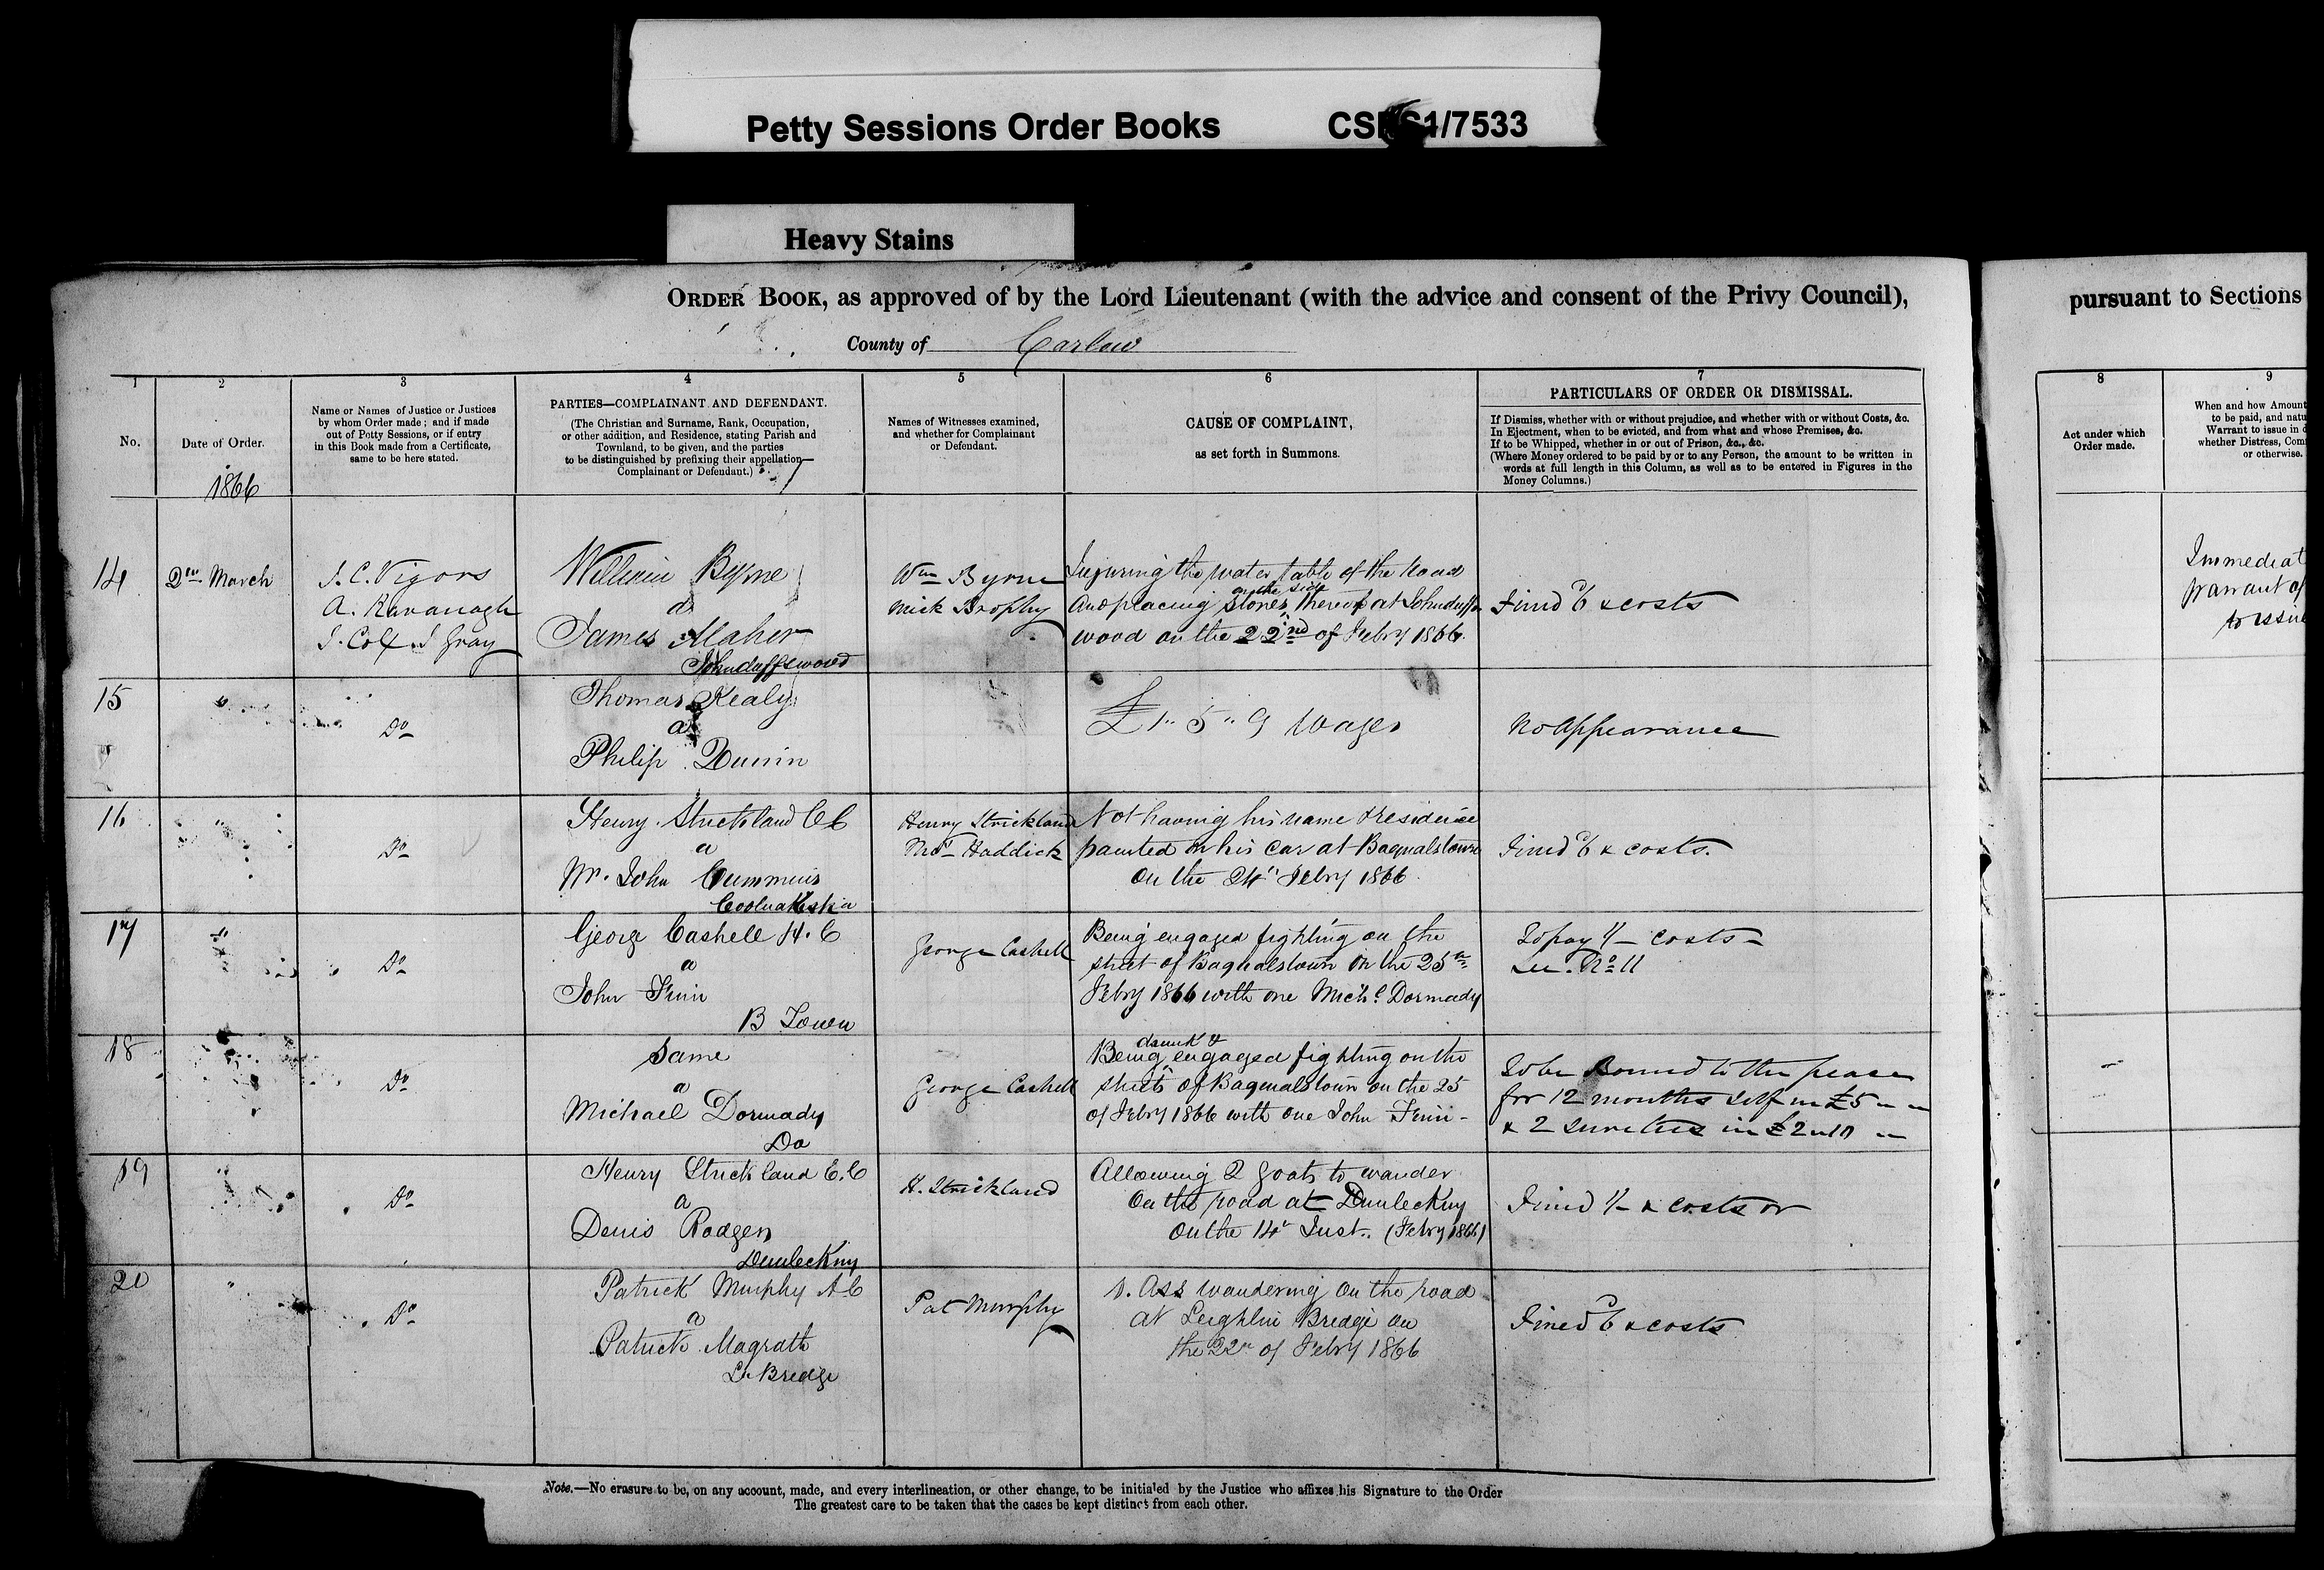 Petty Sessions Order Books CSPS1/7533
Heavy Stains
ORDER BOOK, as approved of by the Lord Lieutenant (with the advice and consent of the Privy Council),
County of Carlow
1
No.
2
Date of Order.
1866
3
Name or Names of Justice or Justices
by whom Order made; and if made
out of Petty Sessions, or if entry
in this Book made from a Certificate,
same to be here stated.
4
PARTIES—COMPLAINANT AND DEFENDANT.
(The Christian and Surname, Rank, Occupation,
or other addition, and Residence, stating Parish and
Townland, to be given, and the parties
to be distinguished by prefixing their appellation—
Complainant or Defendant.)
5
Names of Witnesses examined,
and whether for Complainant
or Defendant.
6
CAUSE OF COMPLAINT,
as set forth in Summons.
7
PARTICULARS OF ORDER OR DISMISSAL.
If Dismiss, whether with or without prejudice, and whether with or without Costs, &c.
In Ejectment, when to be evicted, and from what and whose Premises, &c.
If to be Whipped, whether in or out of Prison, &c., &c.
(Where Money ordered to be paid by or to any Person, the amount to be written in
words at full length in this Column, as well as to be entered in Figures in the
Money Columns.)
14
2nd March
J. C. Vigors
A. Kavanagh
J. Col J Gray
William Byrne
a
James Maher
Johnduffswood
Wm Byrne
Mick Brophy
Injuring the water table of the Road
on the side
and placing stones thereof at Johnduffs
wood on the 22nd of Febry 1866.
Fined 6d & costs
15
"
Do
Thomas Kealy
a
Philip Dunin
£1" 5" 9 Wages
No Appearance
16
"
Do
Henry Strickland C C
a
Mr. John Cummins
Henry Strickland
Haddick
Not having his name & residence
painted on his Car at Bagnalstown
On the 24" Febry 1866
Fined 6d & costs.
17
"
Do
George Cashell H. C
a
John Finn
B Town
George Cashell
Being engaged fighting on the
street of Bagnalstown on the 25th
Febry 1866 with one Michl Dormady
To pay 1/- costs -
See No 11
18
"
Do
Same
a
Michael Dormady
Do
George Cashell
drunk &
Being engaged fighting on the
streets of Bagnalstown on the 25
of Febry 1866 with one John Finn -
To be Bound to the peace
for 12 months self in £5 " "
& 2 sureties in £2"10 "
19
"
Do
Henry Strickland C.C
a
Denis Rodgers
Dunleckny
H. Strickland
Allowing 2 Goats to wander
On the road at Dunleckny
On the 14" Inst. (Febry 1866)
Fined 1/- & costs or
20
"
Do
Patrick Murphy A C
a
Patrick Magrath
L. Bridge
Pat Murphy
1. Ass wandering on the road
at Leighlin Bridge on
the 22nd of Febry 1866
Fined 6d & costs
Note.—No erasure to be, on any account, made, and every interlineation, or other change, to be initialed by the Justice who affixes his Signature to the Order
The greatest care to be taken that the cases be kept distinct from each other.
pursuant to Sections
8
Act under which
Order made.
9
When and how Amount
to be paid, and natu
Warrant to issue in d
whether Distress, Com
or otherwise.
Immediat
Warrant of
to issue